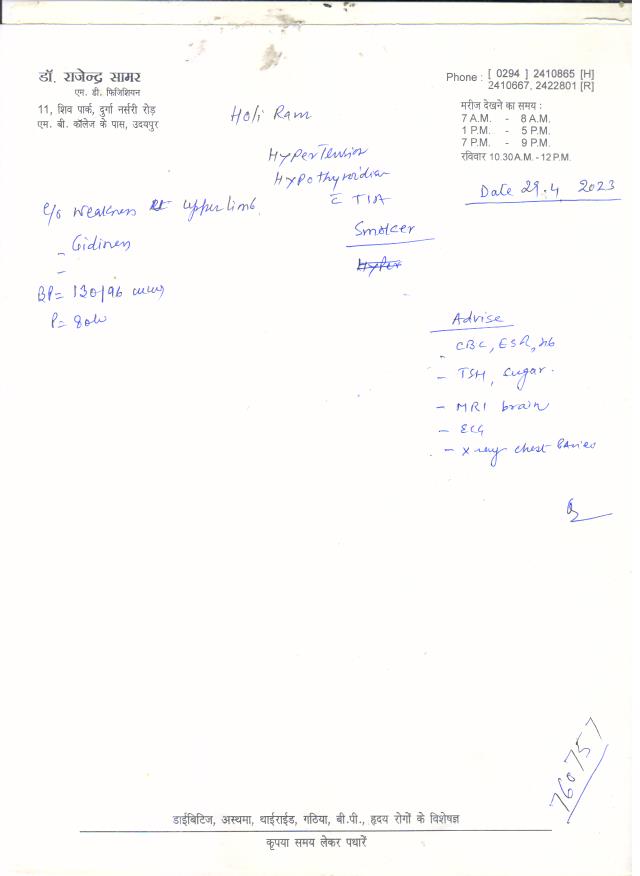 डॉ. राजेन्द्र सामर
एम. डी. फिजिशियन
11, शिव पार्क, दुर्गा नर्सरी रोड़
एम. बी. कॉलेज के पास, उदयपुर
Phone : [ 0294 ] 2410865 [H]
2410667, 2422801 [R]
मरीज देखने का समय :
7 A.M. - 8 A.M.
1 P.M. - 5 P.M.
7 P.M. - 9 P.M.
रविवार 10.30 A.M. - 12 P.M.
Holi Ram
Hypertension
Hypothyroidism
c̄ TIA
Date 29.4 2023
Smoker
Hyper
C/o Weakness upper limb
- Gidiness
-
BP = 130/96
P =
Advise
- CBC, ESR,
- TSH, Sugar.
- MRI brain
- ECG
- X ray chest
760757
डाईबिटिज, अस्थमा, थाईराईड, गठिया, बी.पी., हृदय रोगों के विशेषज्ञ
कृपया समय लेकर पधारें